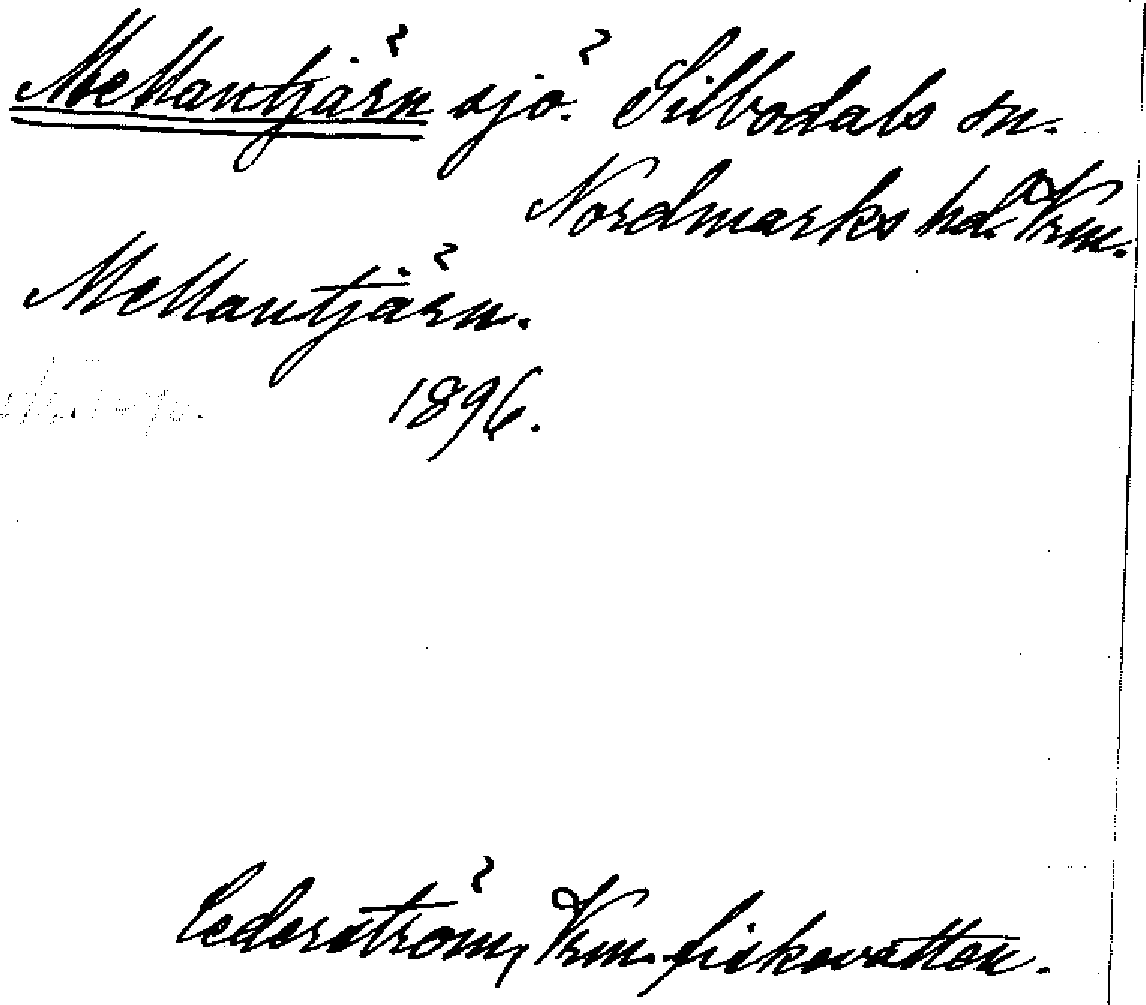 Mellantjärn sjö. Silbodals sn.
Nordmarks hd. Vrm.
Mellantjärn.
1896.
Cederström, Vrm. fiskevatten.